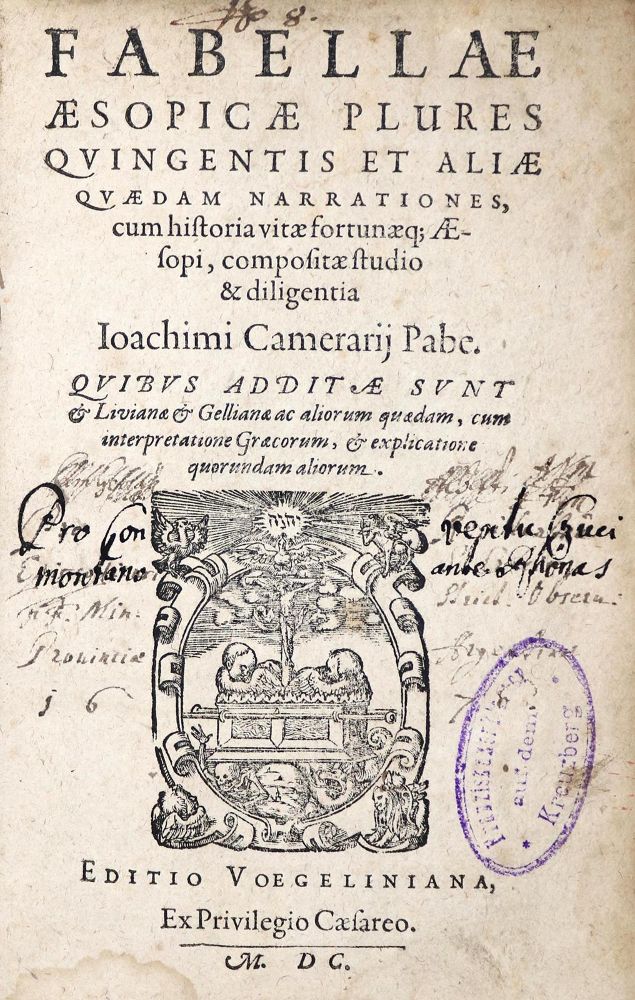 No 8.
FABELLAE
ÆSOPICÆ PLURES
QVINGENTIS ET ALIÆ
QVÆDAM NARRATIONES,
cum hiſtoria vitæ fortunæq; Æ-
ſopi, compoſitæ ſtudio
& diligentia
Ioachimi Camerarij Pabe.
QVIBVS ADDITÆ SVNT
& Livianæ & Gellianæ ac aliorum quædam, cum
interpretatione Græcorum, & explicatione
quorundam aliorum.
יהוה
Pro Con ventu Cruci
montano ante
FF. Min. Strict. Observ:
Provintiæ Argentinæ
1 6
A
Franziskanerkloster
auf dem
* Kreuzberg *
EDITIO VOEGELINIANA,
Ex Privilegio Cæſareo.
M. DC.